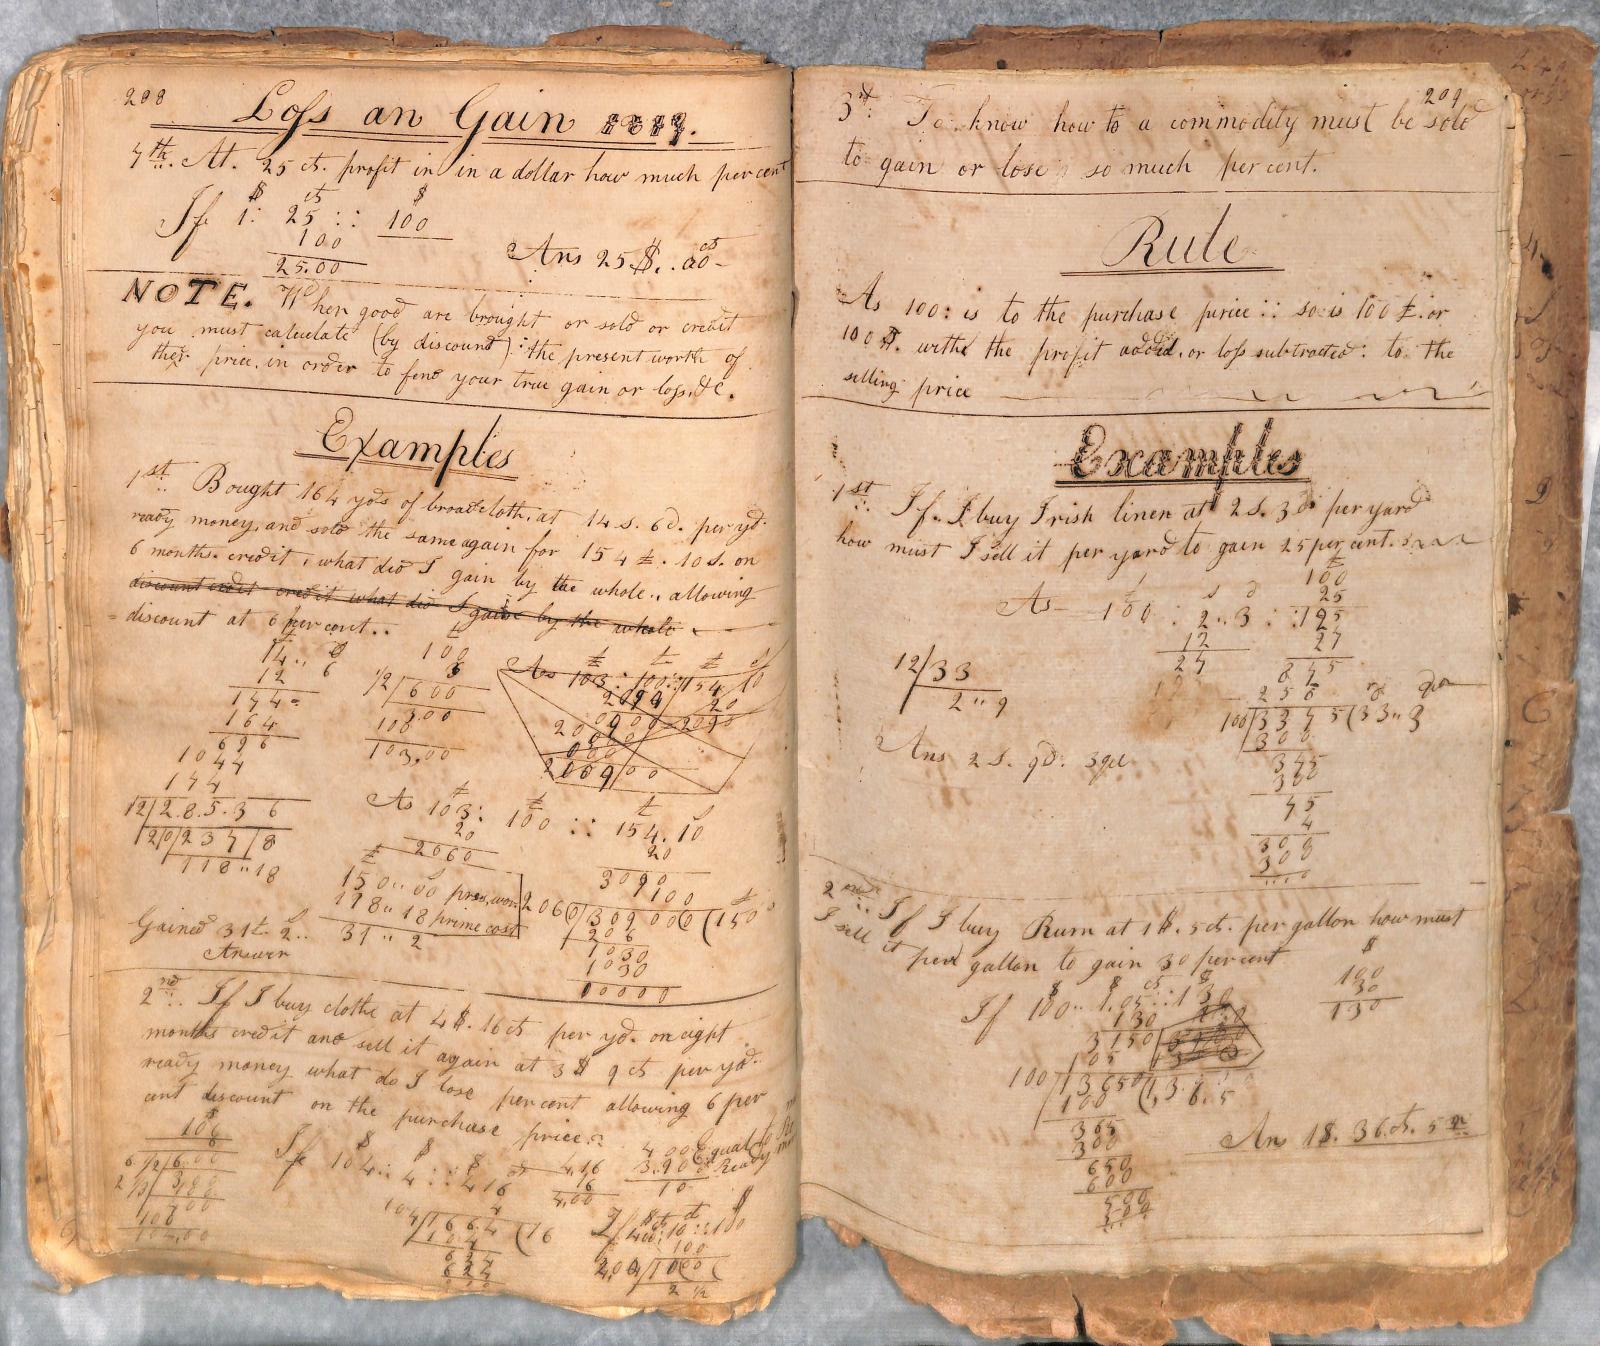 208
Loss an Gain
7th. At. 25 ct. profit in in a dollar how much per cent
$ ct $
If 1: 25 :: 100
100
25.00
Ans 25 $. 00 ct
NOTE. When good are brought or sold or credit
you must calculate (by discount): the present worth of
ther price, in order to fend your true gain or loss, &c.
Examples
1st Bought 164 yds of broadcloth, at 14 s. 6d. per yd.
ready money, and sold the same again for 154 £. 10 s. on
6 months. credit, what did I gain by the whole., allowing
discount credit credit what did I gain by the whole
discount at 6 per cent..
14.. 6
12
174
164
696
1044
174
12/2.8.5.3 6
12/0/237/8
118..18
£
100
6
1/2/600
3.00
100
103.00
As 103: 100:: 154 10
20
As 103: 100 :: 154.10
20 20
2060 3090
100
2060)309000(150
206
1030
1030
0000
£
150..00 pres. wor
118..18 prime cost
31..2
Gained 31£ 2..
Answer
2nd.. If I buy clothe at 4$. 16 ct per yd. on eight
months credit and sell it again at 3 $ 9 ct per yd.
ready money what do I lose per cent allowing 6 per
cent discount on the purchase price.
$
100
6
6/12/6.00
2/3/300
100
400
100
104.00
$ $ $
If 104:: 4 :: 4 16
4
104/1664(16
104
624
624
4.16
16
4.00
4.00 Equal to
3.90 Ready
10
$ ct ct $
If 400:10::100
100
4.00/1000(
2 1/2
209
3rd: To know how to a commodity must be sold
to gain or lose so much per cent.
Rule
As 100: is to the purchase price:: so is 100 £. or
100 $. withe the profit added, or loss subtracted: to the
selling price
Examples
1st If. I buy Irish linen at 2 s. 3d per yard
how must I sell it per yard to gain 25 per cent.
£
100
25
£ s d
As 100 . 2..3 ::125
12 27
27 875
250
100/3375(33..3
300
375
300
75
4
300
300
12/33
2..9
Ans 2 s. 9d. 3 qr
2nd.. If I buy Rum at 1 $. 5 ct. per gallon how must
I sell it per gallon to gain 30 per cent
$
100
30
130
$ $ ct $
If 100.. 1.05::130
130
3150
105
100/13650(1,3.6.5
100
365
300
650
600
500
500
An 1$. 36 ct. 5 m